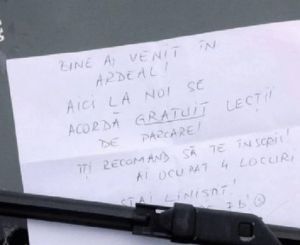 BINE AI VENIT ÎN
ARDEAL!
AICI LA NOI SE
ACORDĂ GRATUIT LECȚII
DE PARCARE!
ÎȚI RECOMAND SĂ TE ÎNSCRII!
AI OCUPAT 4 LOCURI
STAI LINIȘTIT!